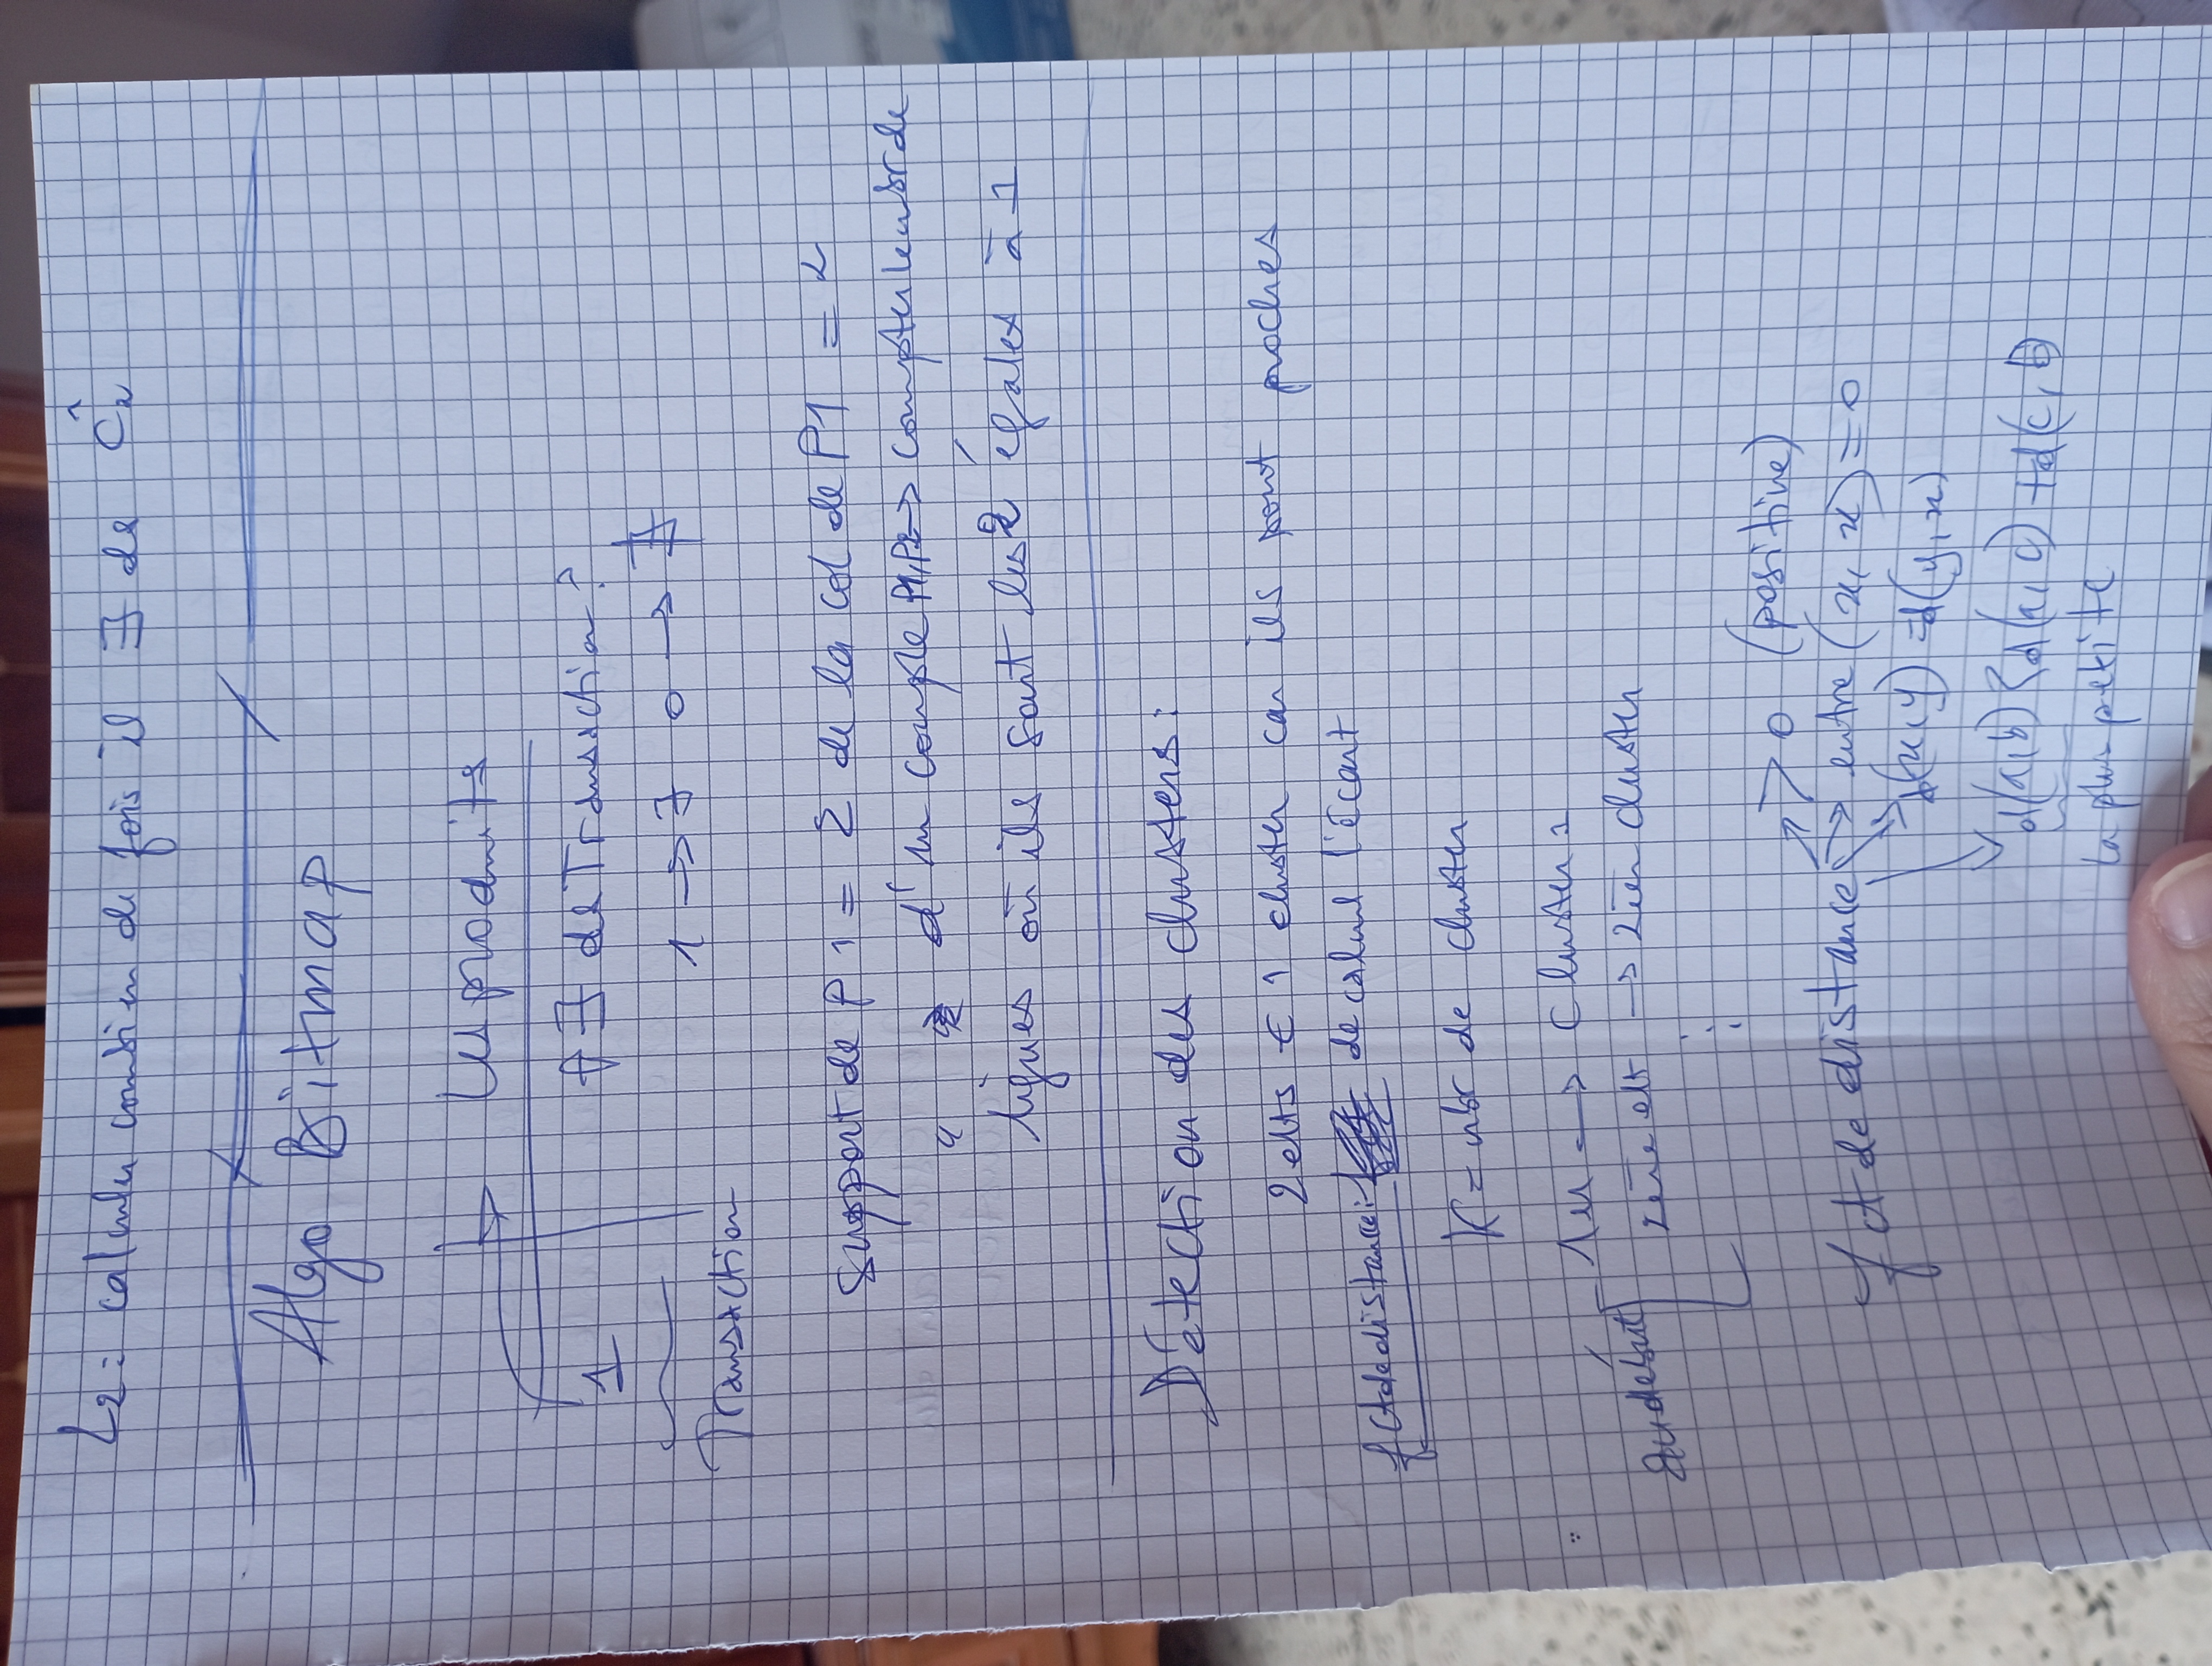 L2 : calculer combien de fois il ∃ de Ĉ2
Algo Bitmap
les produits
1
∃ de Transaction ?
1 → ∃ 0 → ∄
Transaction
Support de P1 = Σ de la col de P1 = 2
" d'un couple P1,P2 → compter le nbr de
lignes où ils sont les 2 égales à 1
Détection des clusters :
2 elts ∈ 1 cluster car ils sont proches
fct de distance : de calcul l'écart
K = nbr de cluster
au début
1er → Cluster 1
2ème elt → 2ièr cluster
⋮
fct de distance
→ > 0 (positive)
→ entre (x, x) = 0
→ d(x, y) = d(y, x)
d(a, b) ≤ d(a, c) + d(c, b)
la plus petite